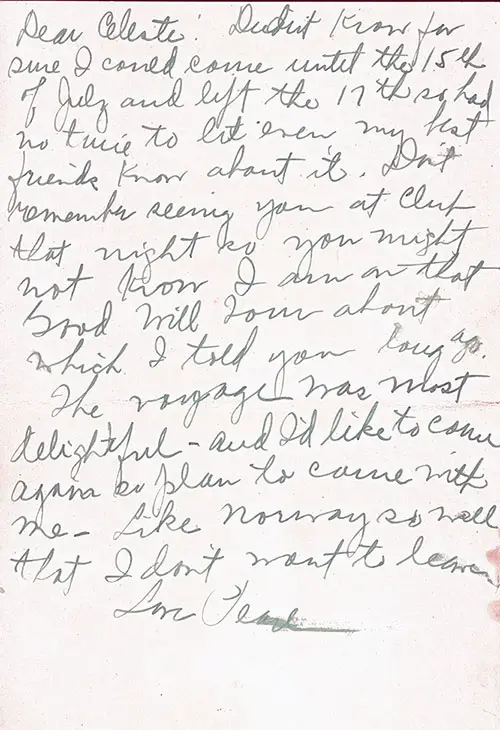 Dear Celeste: Didn't know for
sure I could come until the 15th
of July and left the 17th so had
no time to let even my best
friends know about it. Don't
remember seeing you at Club
that night so you might
not know I am on that
Good Will Tour about
which I told you long ago.
The voyage was most
delightful - and I'd like to come
again so plan to come with
me - Like Norway so well
that I don't want to leave
Love Pearl